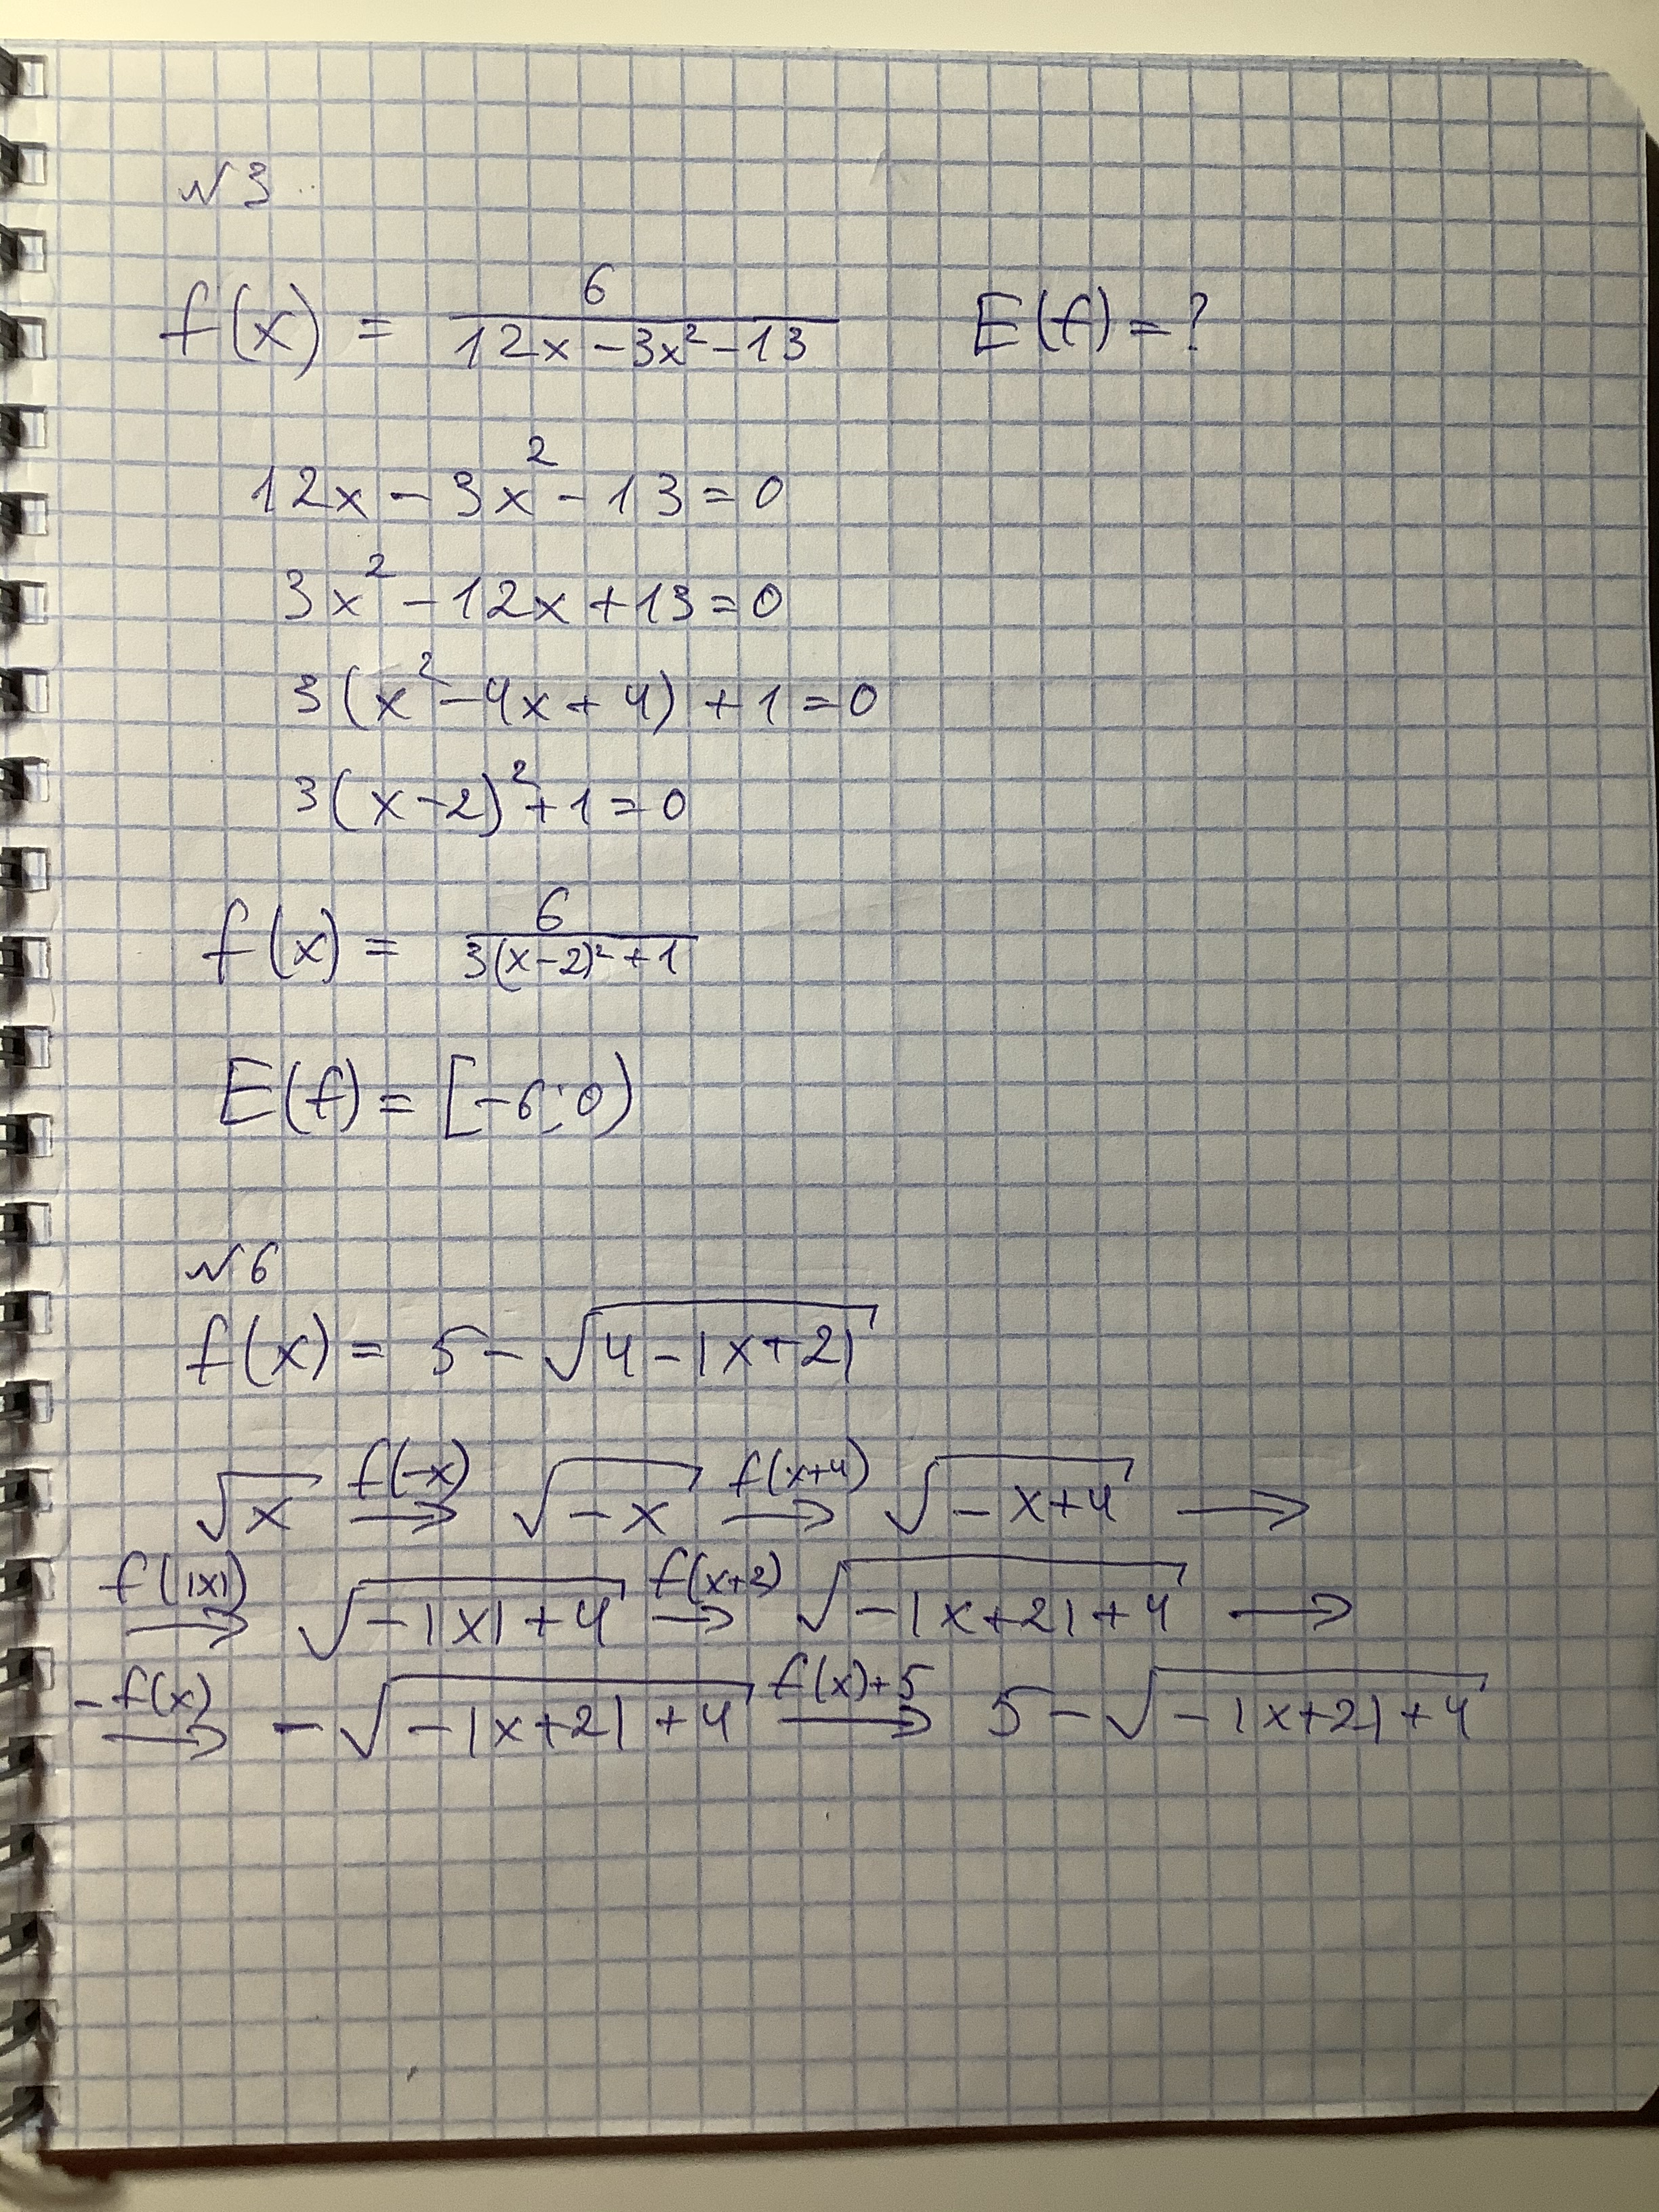 №3
f(x) = 6/(12x - 3x² - 13) E(f) = ?
12x - 3x² - 13 = 0
3x² - 12x + 13 = 0
3(x² - 4x + 4) + 1 = 0
3(x - 2)² + 1 = 0
f(x) = 6/(3(x-2)² + 1)
E(f) = [-6; 0)
№6
f(x) = 5 - √(4 - |x+2|)
√x f(-x) → √(-x) f(x+4) → √(-x+4) →
f(|x|) → √(-|x|+4) f(x+2) → √(-|x+2|+4) →
-f(x) → -√(-|x+2|+4) f(x)+5 → 5 - √(-|x+2|+4)